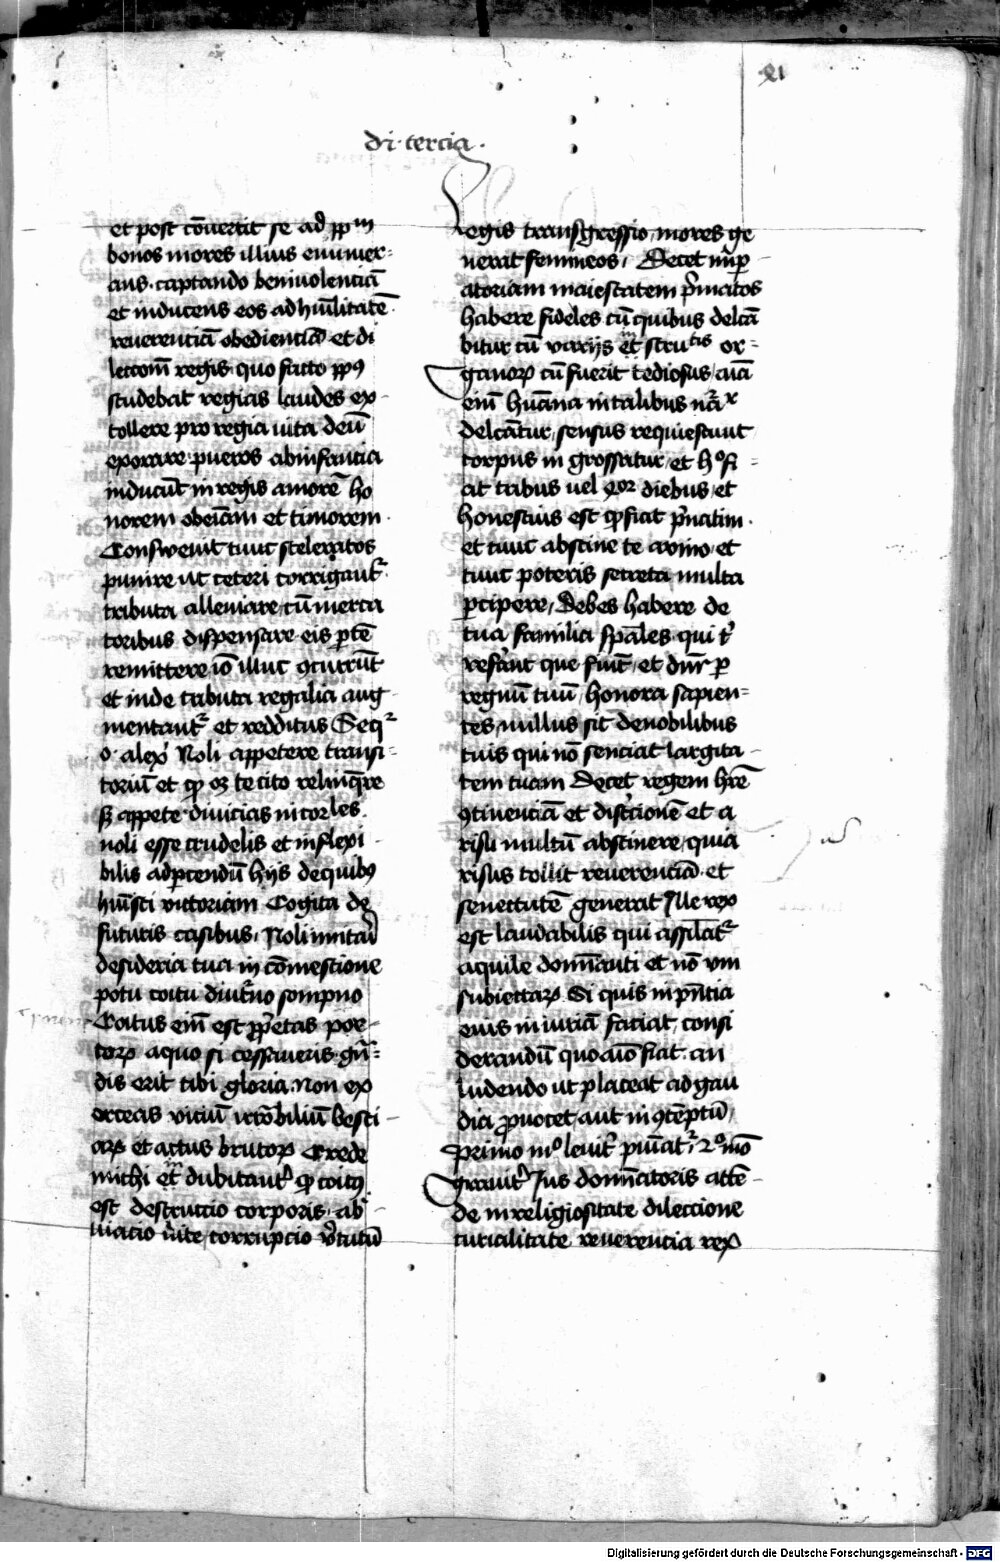 di tercia
et post cōuertit se ad ppm
bonos mores illius enumer-
ans captando beniuolenciā
et inducens eos ad humilitatē
reuerenciā obedienciā et di
leccōm regis quo facto pp9
studebat regias laudes ex-
tollere pro regia uita deū
exorare pueros ab infancia
inducūt in regis amorē ho
norem obeiām et timorem
Conswevit tunc sceleratos
punire ut ceteri corrigant᷑
tributa alleuiare cū merca
toribus dispensare eis ꝑtē
remittere iō illuc ꝯcurrūt
et inde tributa regalia aug
mentant᷑ et redditus Seq᷑
o alex̄ Noli appetere transi-
toriū et ꝙ oꝫ te cito relinq̄re
sꝫ appete diuicias incorles
noli esse crudelis et inflexi
bilis ad ꝑcendū hijs de quibꝯ
huīsti uictoriam Cogita de
futuris casibus Noli imitari
desideria tua in cōmestione
potu coitu diut̄no sompno
Coitus em̄ est ꝓprietas por-
corꝝ a quo si cessaueris gn̄-
dis erit tibi gloria non ex
erceas viciū irrōbiliū besti-
arꝝ et actus brutorꝝ Crede
michi dubitant᷑ ꝙ coitꝯ
est destruccio corporis ab-
uiacio uite corrupcio v̄tutū
Legis transgressio mores ge
nerat femineos Decet imꝑ-
atoriam maiestatem p̄matos
habere fideles cū quibus delcā
bitur cū varijs or-
ganorꝝ cū fuerit tediosus aīa
em̄ humana in talibus
delcāntur sensus requiescunt
corpus in grossatur et hoc fi-
at tribus uel diebus et
honestius est ꝙ fiat p̄uatim
et tunc abstine te a vino et
tunc poteris secreta multa
ꝑcipere Debes habere de
tua familia spāles qui t'
referant que fiūt et dnr̄ ꝑ
regnū tuū honora sapien-
tes nullus sit de nobilibus
tuis qui nō senciat largita-
tem tuam Decet regem hr̄e
ꝯtinenciā et discrcionē et a
risu multū abstinere quia
risus tollit reuerenciā et
senectutē generat Ille rex
est laudabilis qui assilat᷑
aquile domn̄anti et nō vni
subiectarꝝ Si quis in pn̄tia
eius iniuriā faciat consi
derandū quo aīo fiat an
ludendo ut placeat ad gau
dia ꝓuocet aut in ꝯtēptū
primo mo leuit᷑ puniat᷑ 2o mō
grauit᷑ Ius domn̄atoris attē-
de in religiositate dileccione
curialitate reuerencia rex